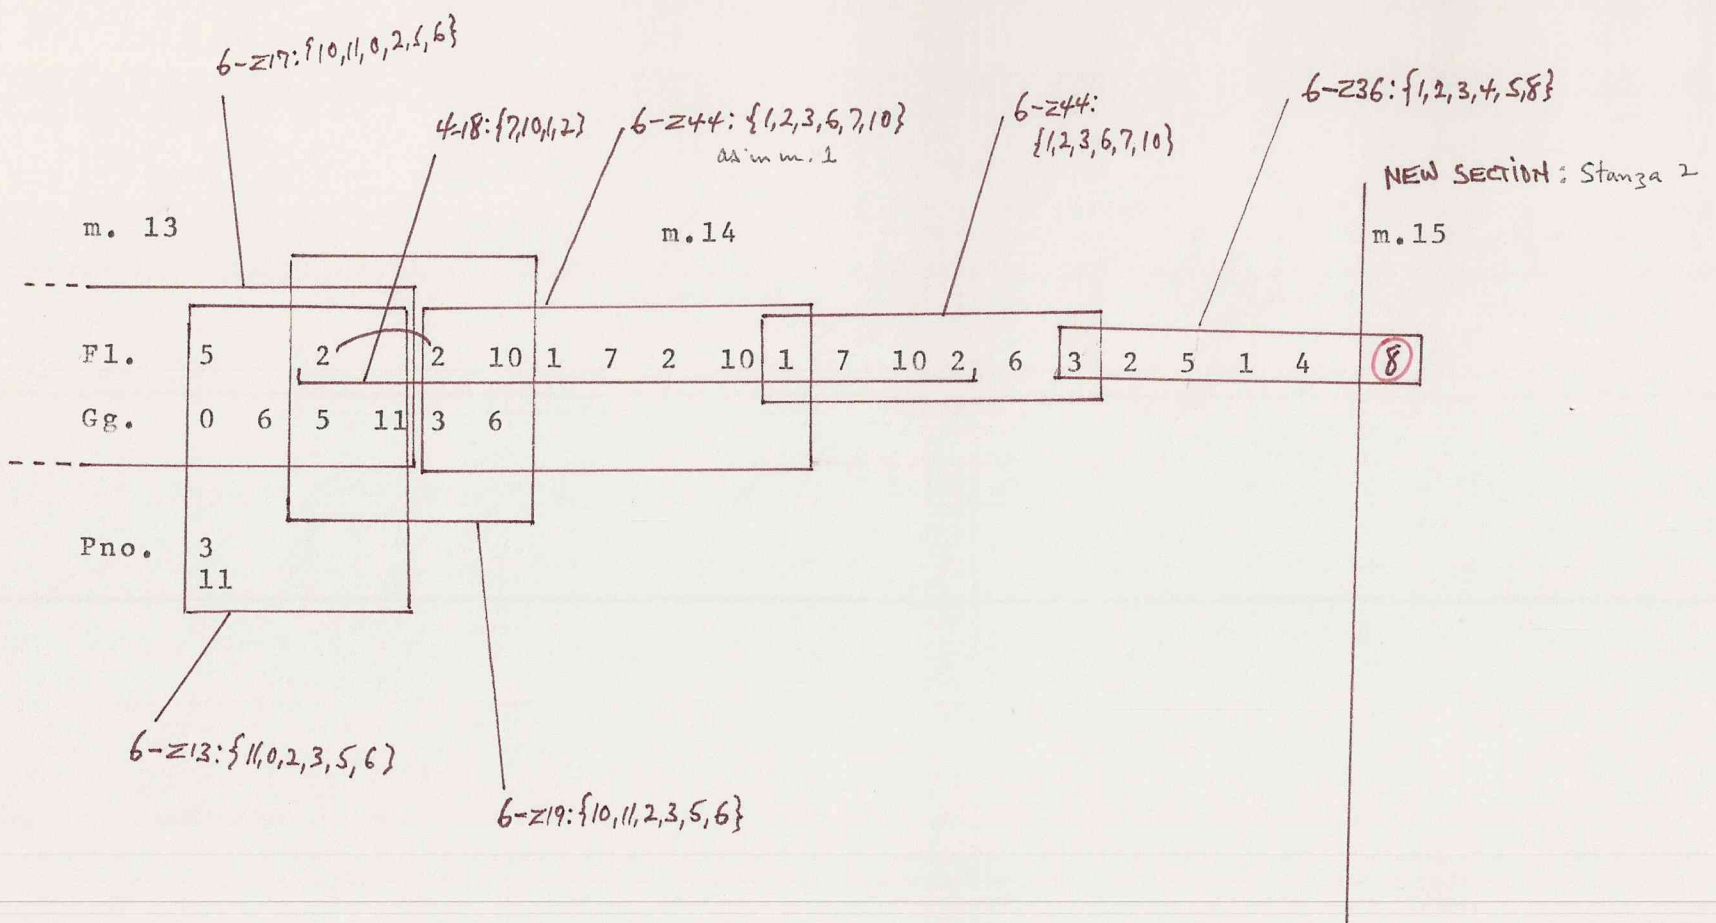 6-z17:{10,11,0,2,5,6}
4-18:{7,10,1,2}
6-z44: {1,2,3,6,7,10}
as in m. 1
6-z44:
{1,2,3,6,7,10}
6-z36:{1,2,3,4,5,8}
NEW SECTION: Stanza 2
m. 13
m.14
m.15
Fl. 5 2 2 10 1 7 2 10 1 7 10 2, 6 3 2 5 1 4 8
Gg. 0 6 5 11 3 6
Pno. 3
11
6-z13:{11,0,2,3,5,6}
6-z19:{10,11,2,3,5,6}